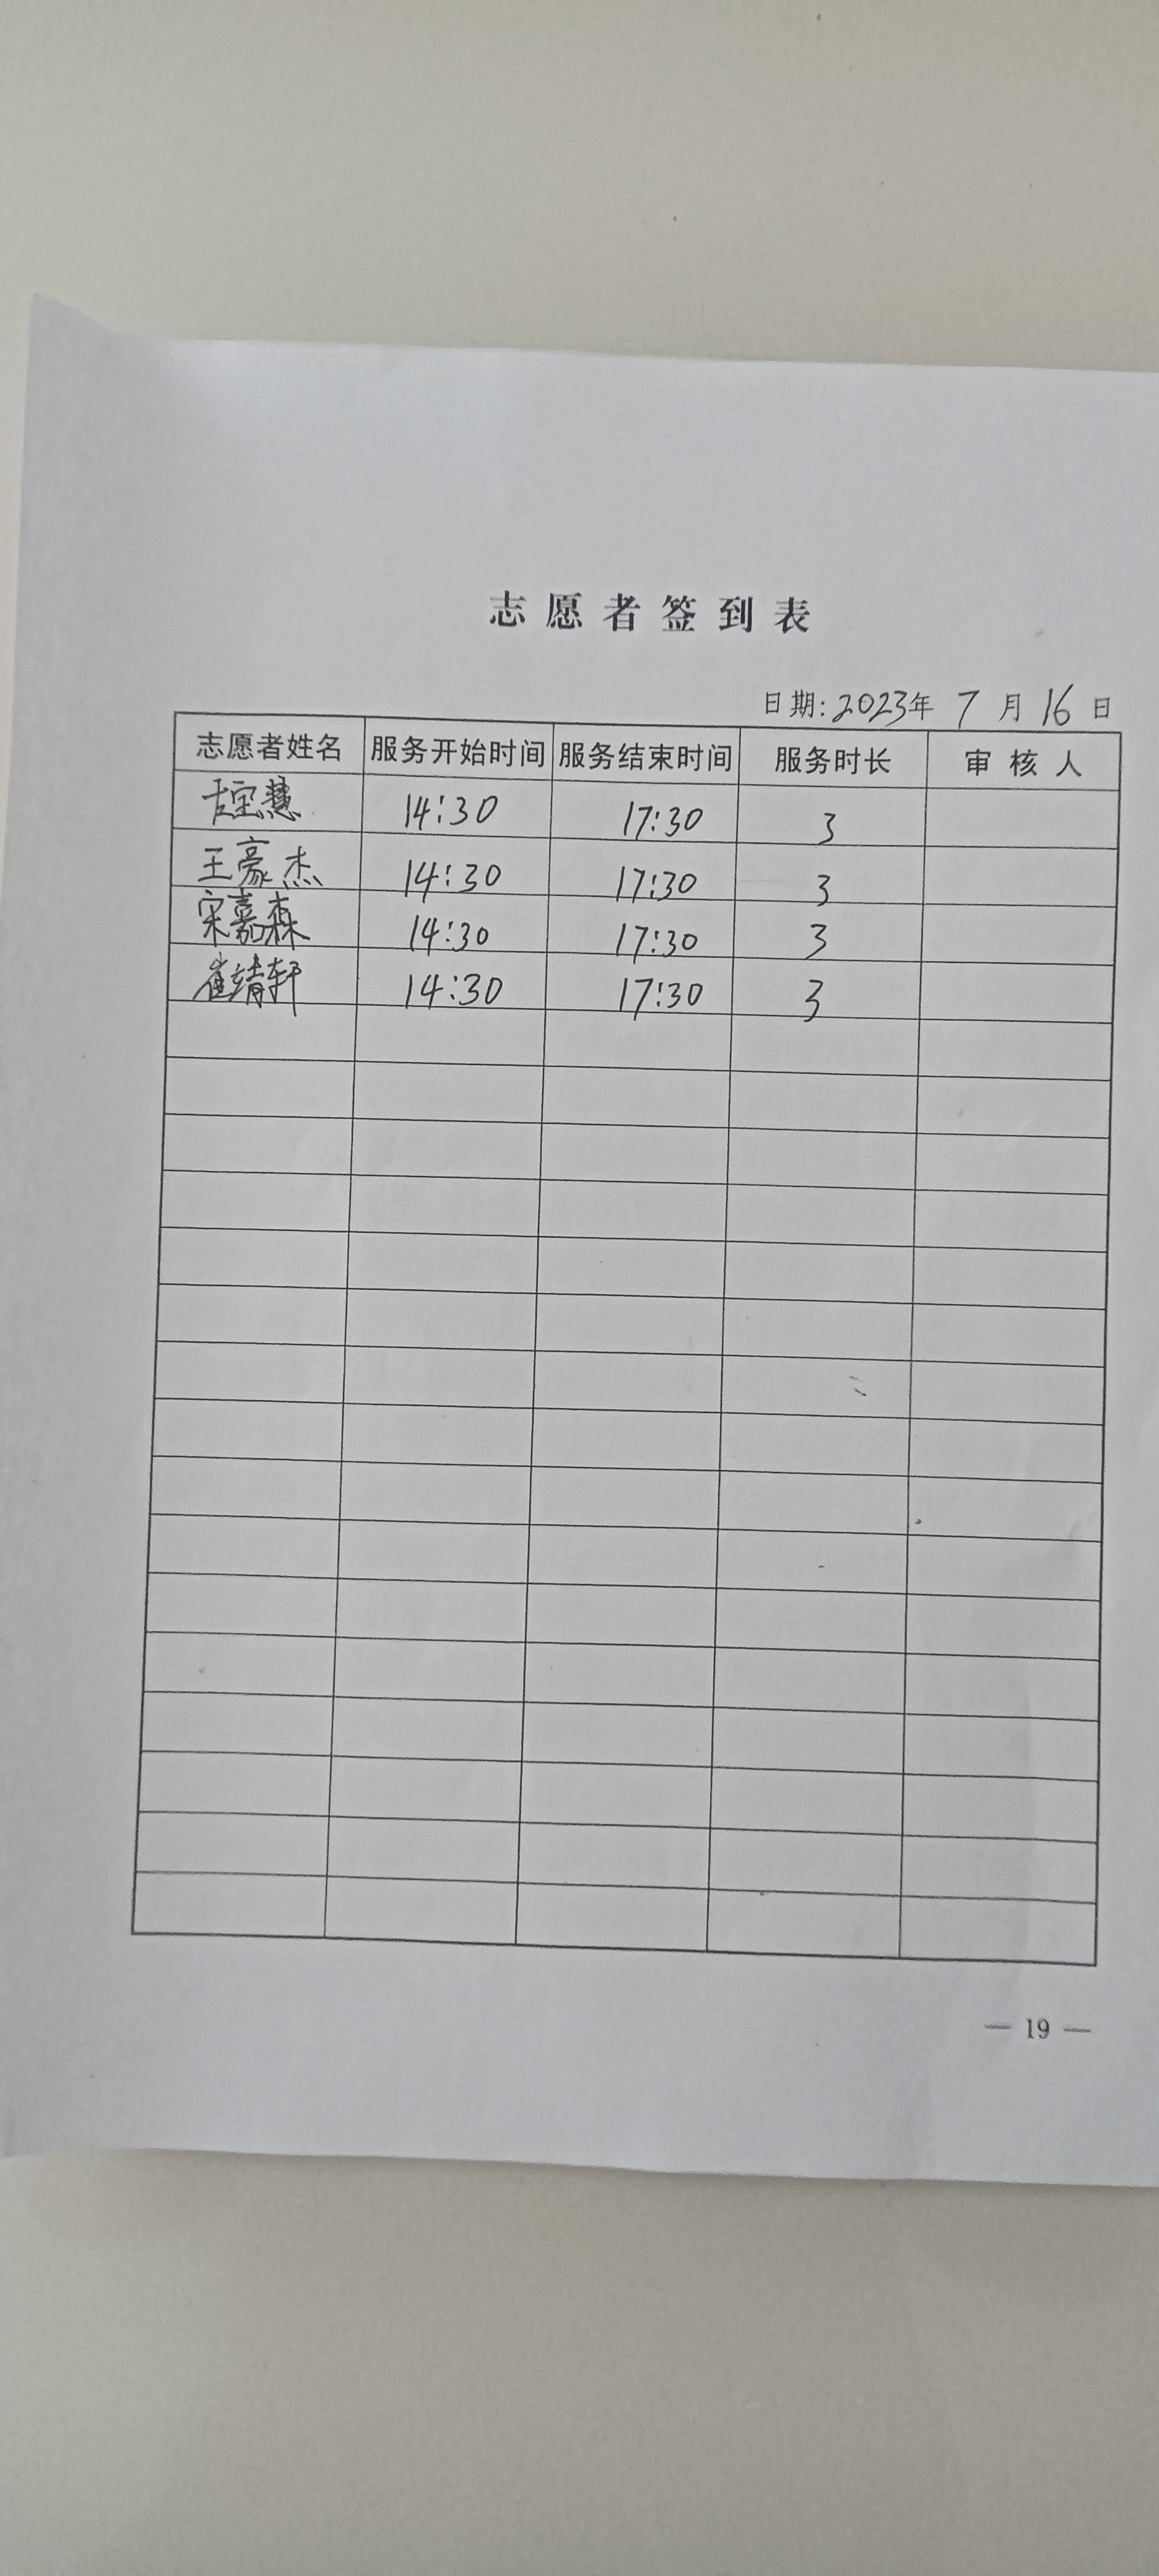 志愿者签到表
日期:2023年 7 月 16 日
志愿者姓名 服务开始时间 服务结束时间 服务时长 审核人
宝慧 14:30 17:30 3
王豪杰 14:30 17:30 3
宋嘉森 14:30 17:30 3
崔靖轩 14:30 17:30 3
— 19 —